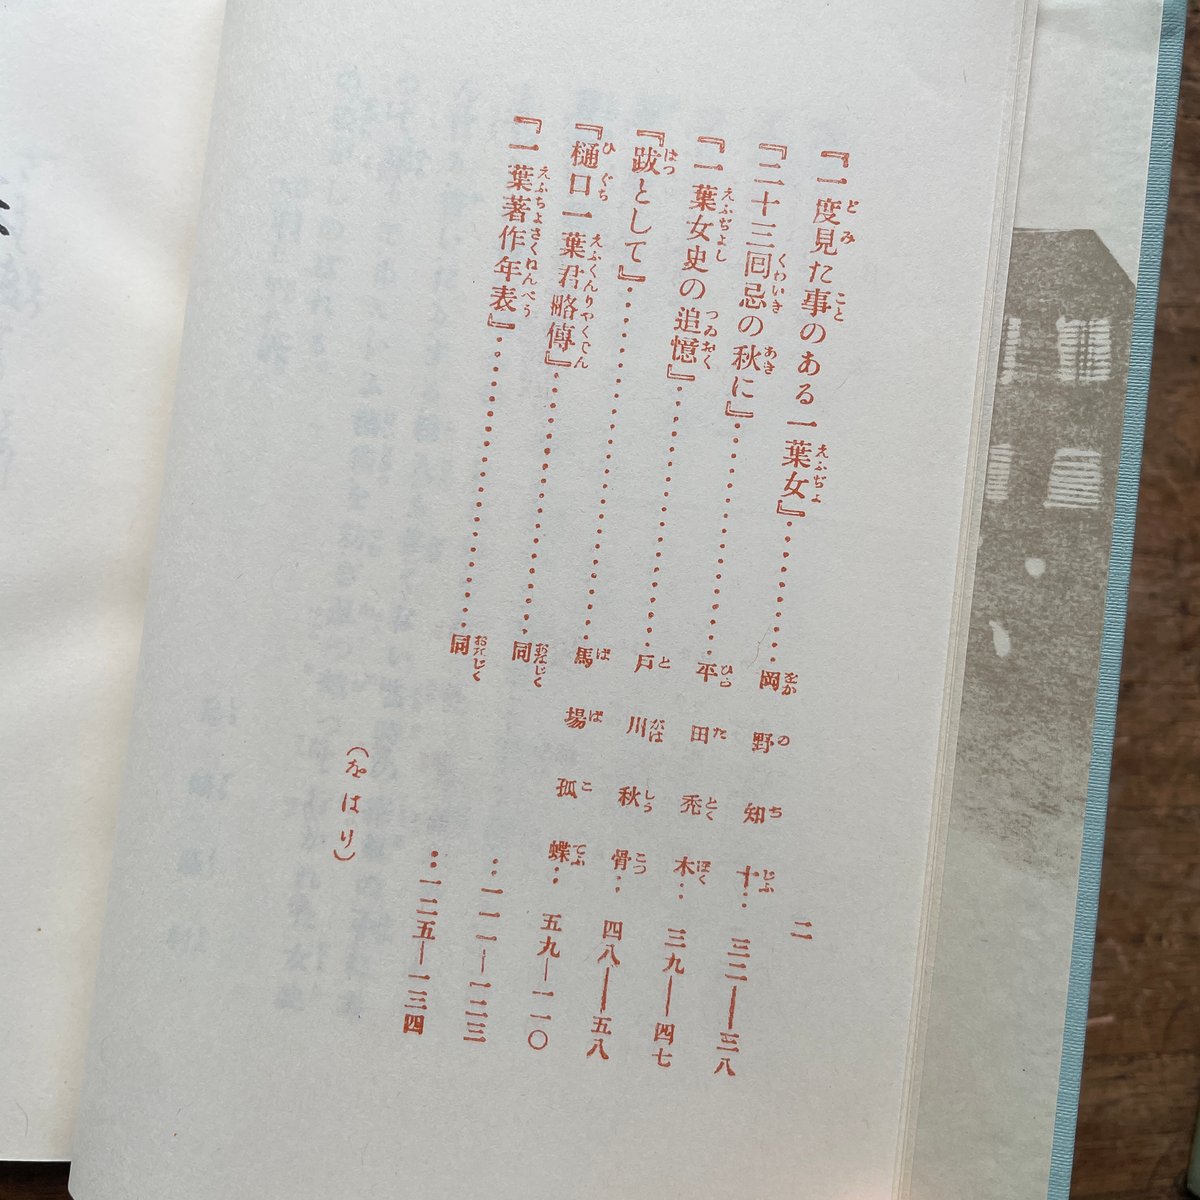 『一度見た事のある一葉女』…………岡野知十…三二―三八
『二十三囘忌の秋に』…………平田禿木…三九―四七
『一葉女史の追憶』…………戸川秋骨…四八―五八
『跋として』…………馬場孤蝶…五九―一一〇
『樋口一葉君略傳』…………同…一一一―一二三
『一葉著作年表』…………同…一二五―一三四
(をはり)
二